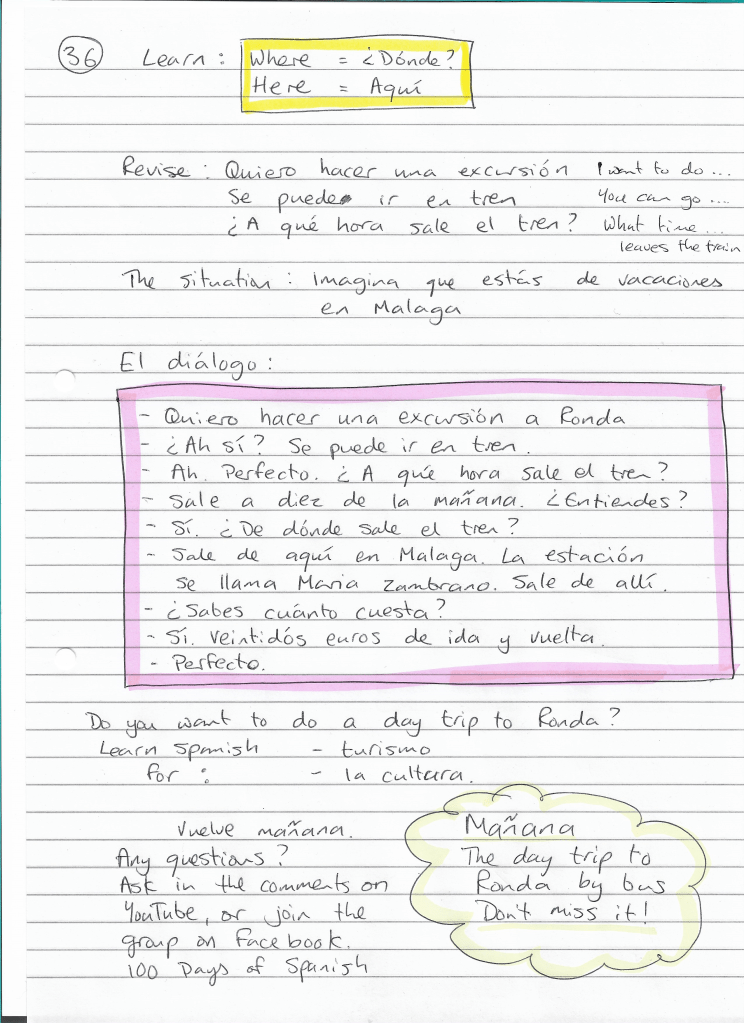 36 Learn : Where = ¿Dónde?
Here = Aquí
Revise : Quiero hacer una excursión I want to do ...
Se puede ir en tren You can go ....
¿A qué hora sale el tren? What time ...
leaves the train
The situation : Imagina que estás de vacaciones
en Malaga
El diálogo :
- Quiero hacer una excursión a Ronda
- ¿Ah sí? Se puede ir en tren.
- Ah. Perfecto. ¿A qué hora sale el tren?
- Sale a diez de la mañana. ¿Entiendes?
- Sí. ¿De dónde sale el tren?
- Sale de aquí en Malaga. La estación
se llama Maria Zambrano. Sale de allí.
- ¿Sabes cuánto cuesta?
- Sí. Veintidós euros de ida y vuelta.
- Perfecto.
Do you want to do a day trip to Ronda?
Learn Spanish - turismo
for : - la cultura.
Vuelve mañana.
Any questions?
Ask in the comments on
YouTube, or join the
group on Facebook.
100 Days of Spanish
Mañana
The day trip to
Ronda by bus
Don't miss it!